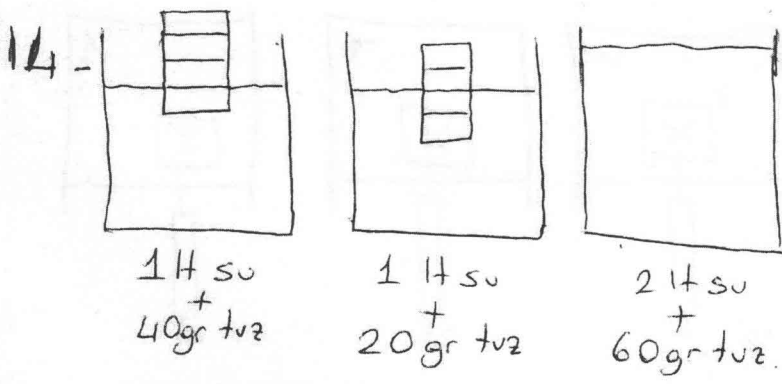 14-
1 lt su
+
40gr tuz
1 lt su
+
20gr tuz
2 lt su
+
60gr tuz.